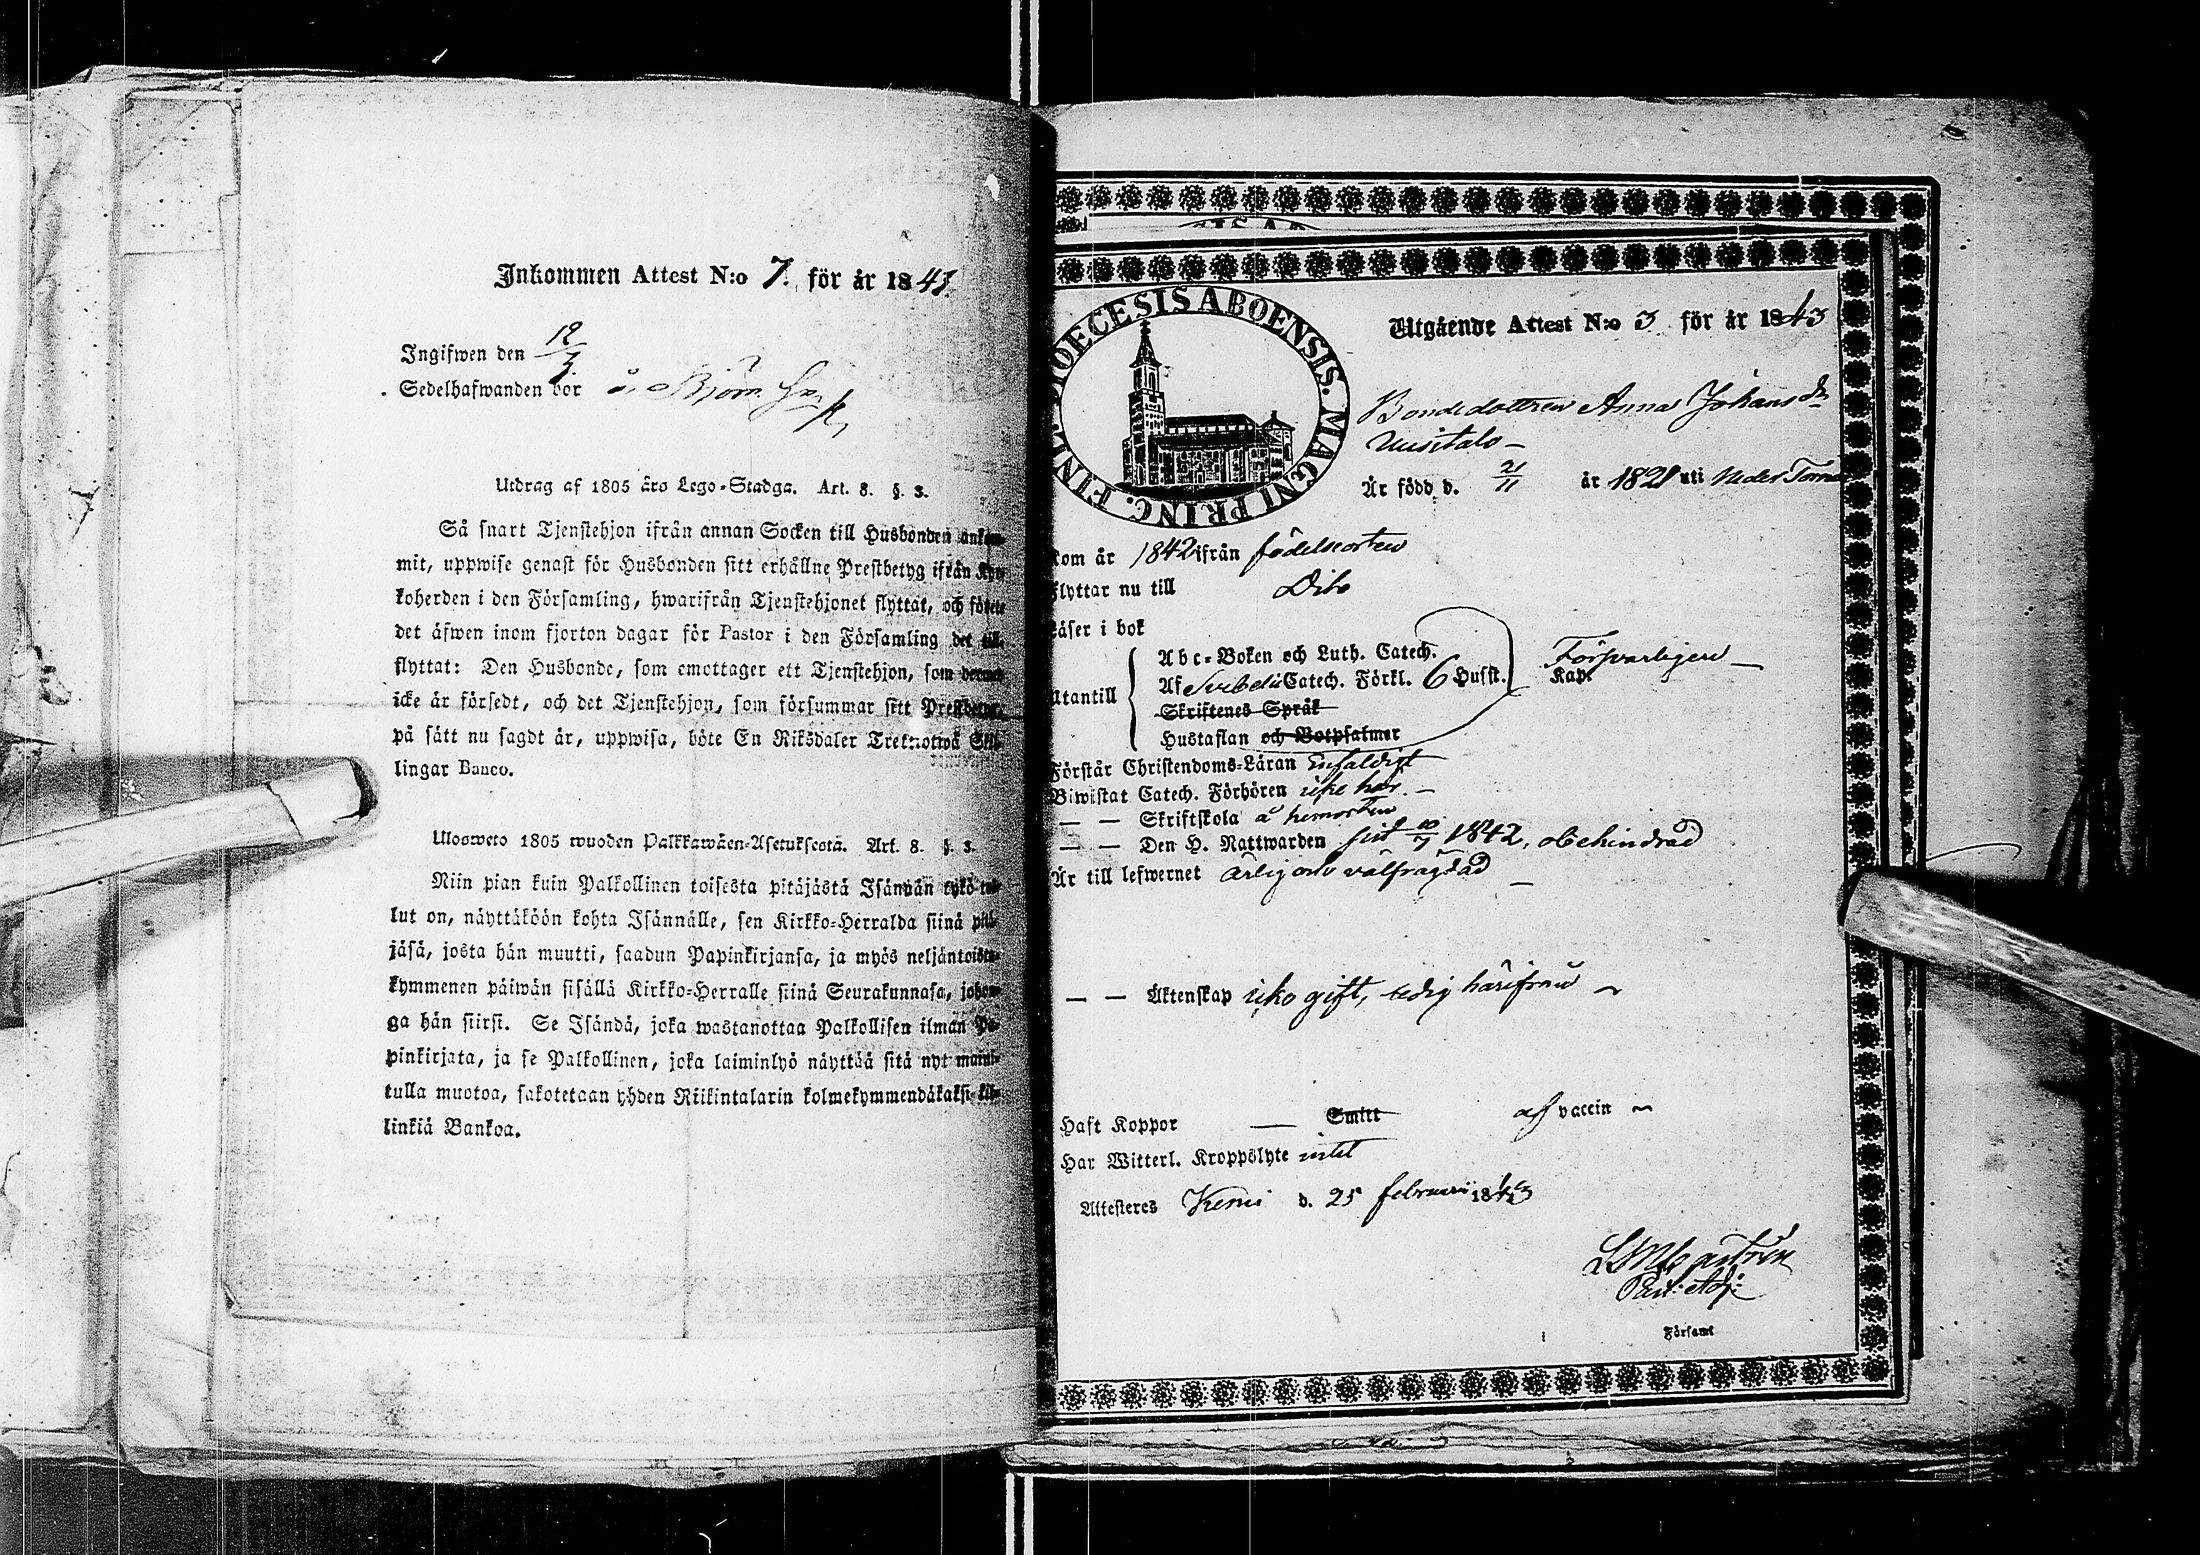 Inkommen Attest N:o 7. för år 1843.
Ingifwen den 12/3.
Sedelhafwanden bor å Björn
Utdrag af 1805 års Lego-Stadga. Art. 8. §. 3.
Så snart Tjenstehjon ifrån annan Socken till Husbonden ankom-
mit, uppwise genast för Husbonden sitt erhållne Prestbetyg ifrån Kyr-
koherden i den Församling, hwarifrån Tjenstehjonet flyttat, och förete
det äfwen inom fjorton dagar för Pastor i den Församling det till-
flyttat: Den Husbonde, som emottager ett Tjenstehjon, som dermed
icke är försedt, och det Tjenstehjon, som försummar sitt Prestbetyg,
på sätt nu sagdt är, uppwisa, böte En Riksdaler Tretiotwå Skil-
lingar Banco.
Ulosweto 1805 wuoden Palkkawäen-Asetuksesta. Art. 8. §. 3.
Niin pian kuin Palkollinen toisesta pitäjästä Isännän tykö tul-
lut on, näyttäköön kohta Isännälle, sen Kirkko-Herralda siinä pitä-
jäsä, josta hän muutti, saadun Papinkirjansa, ja myös neljäntoista-
kymmenen päiwän sisällä Kirkko-Herralle siinä Seurakunnasa, johon-
ga hän siirsi. Se Isändä, joka wastanottaa Palkollisen ilman Pa-
pinkirjata, ja se Palkollinen, joka laiminlyö näyttää sitä nyt maini-
tulla muotoa, sakotetaan yhden Riikintalarin kolmekymmendäkaksi kil-
linkiä Bankoa.
DIOECESIS ABOENSIS. MAGNI PRINC. FINL.
Utgående Attest N:o 3 för år 1843
Bondedottren Anna Johansdr
Uusitalo –
Är född d. 21/11 år 1821 uti Neder Torne
Kom år 1842 ifrån födelseorten
Flyttar nu till Dito
Läser i bok
Utantill
Abc-Boken och Luth. Catech.
Af Svebelii Catech. Förkl. 6 Husst. Kap.
Försvarligen –
Skriftenes Språk
Hustaflan och Botpsalmer
Förstår Christendoms-Läran Enfaldigt
Biwistat Catech. Förhören icke här. –
— — Skriftskola å hemorten
— — Den H. Nattwarden sist 10/7 1842, obehindrad
Är till lefwernet ärlig och välfrägdad –
— — Äktenskap icke gift, ledig härifrån ~
Haft Koppor — Smitt af vaccin ~
Har Witterl. Kroppslyte intet
Attesteres Kemi d. 25 februarii 1843
Castrén
Past. Adj:
Församl